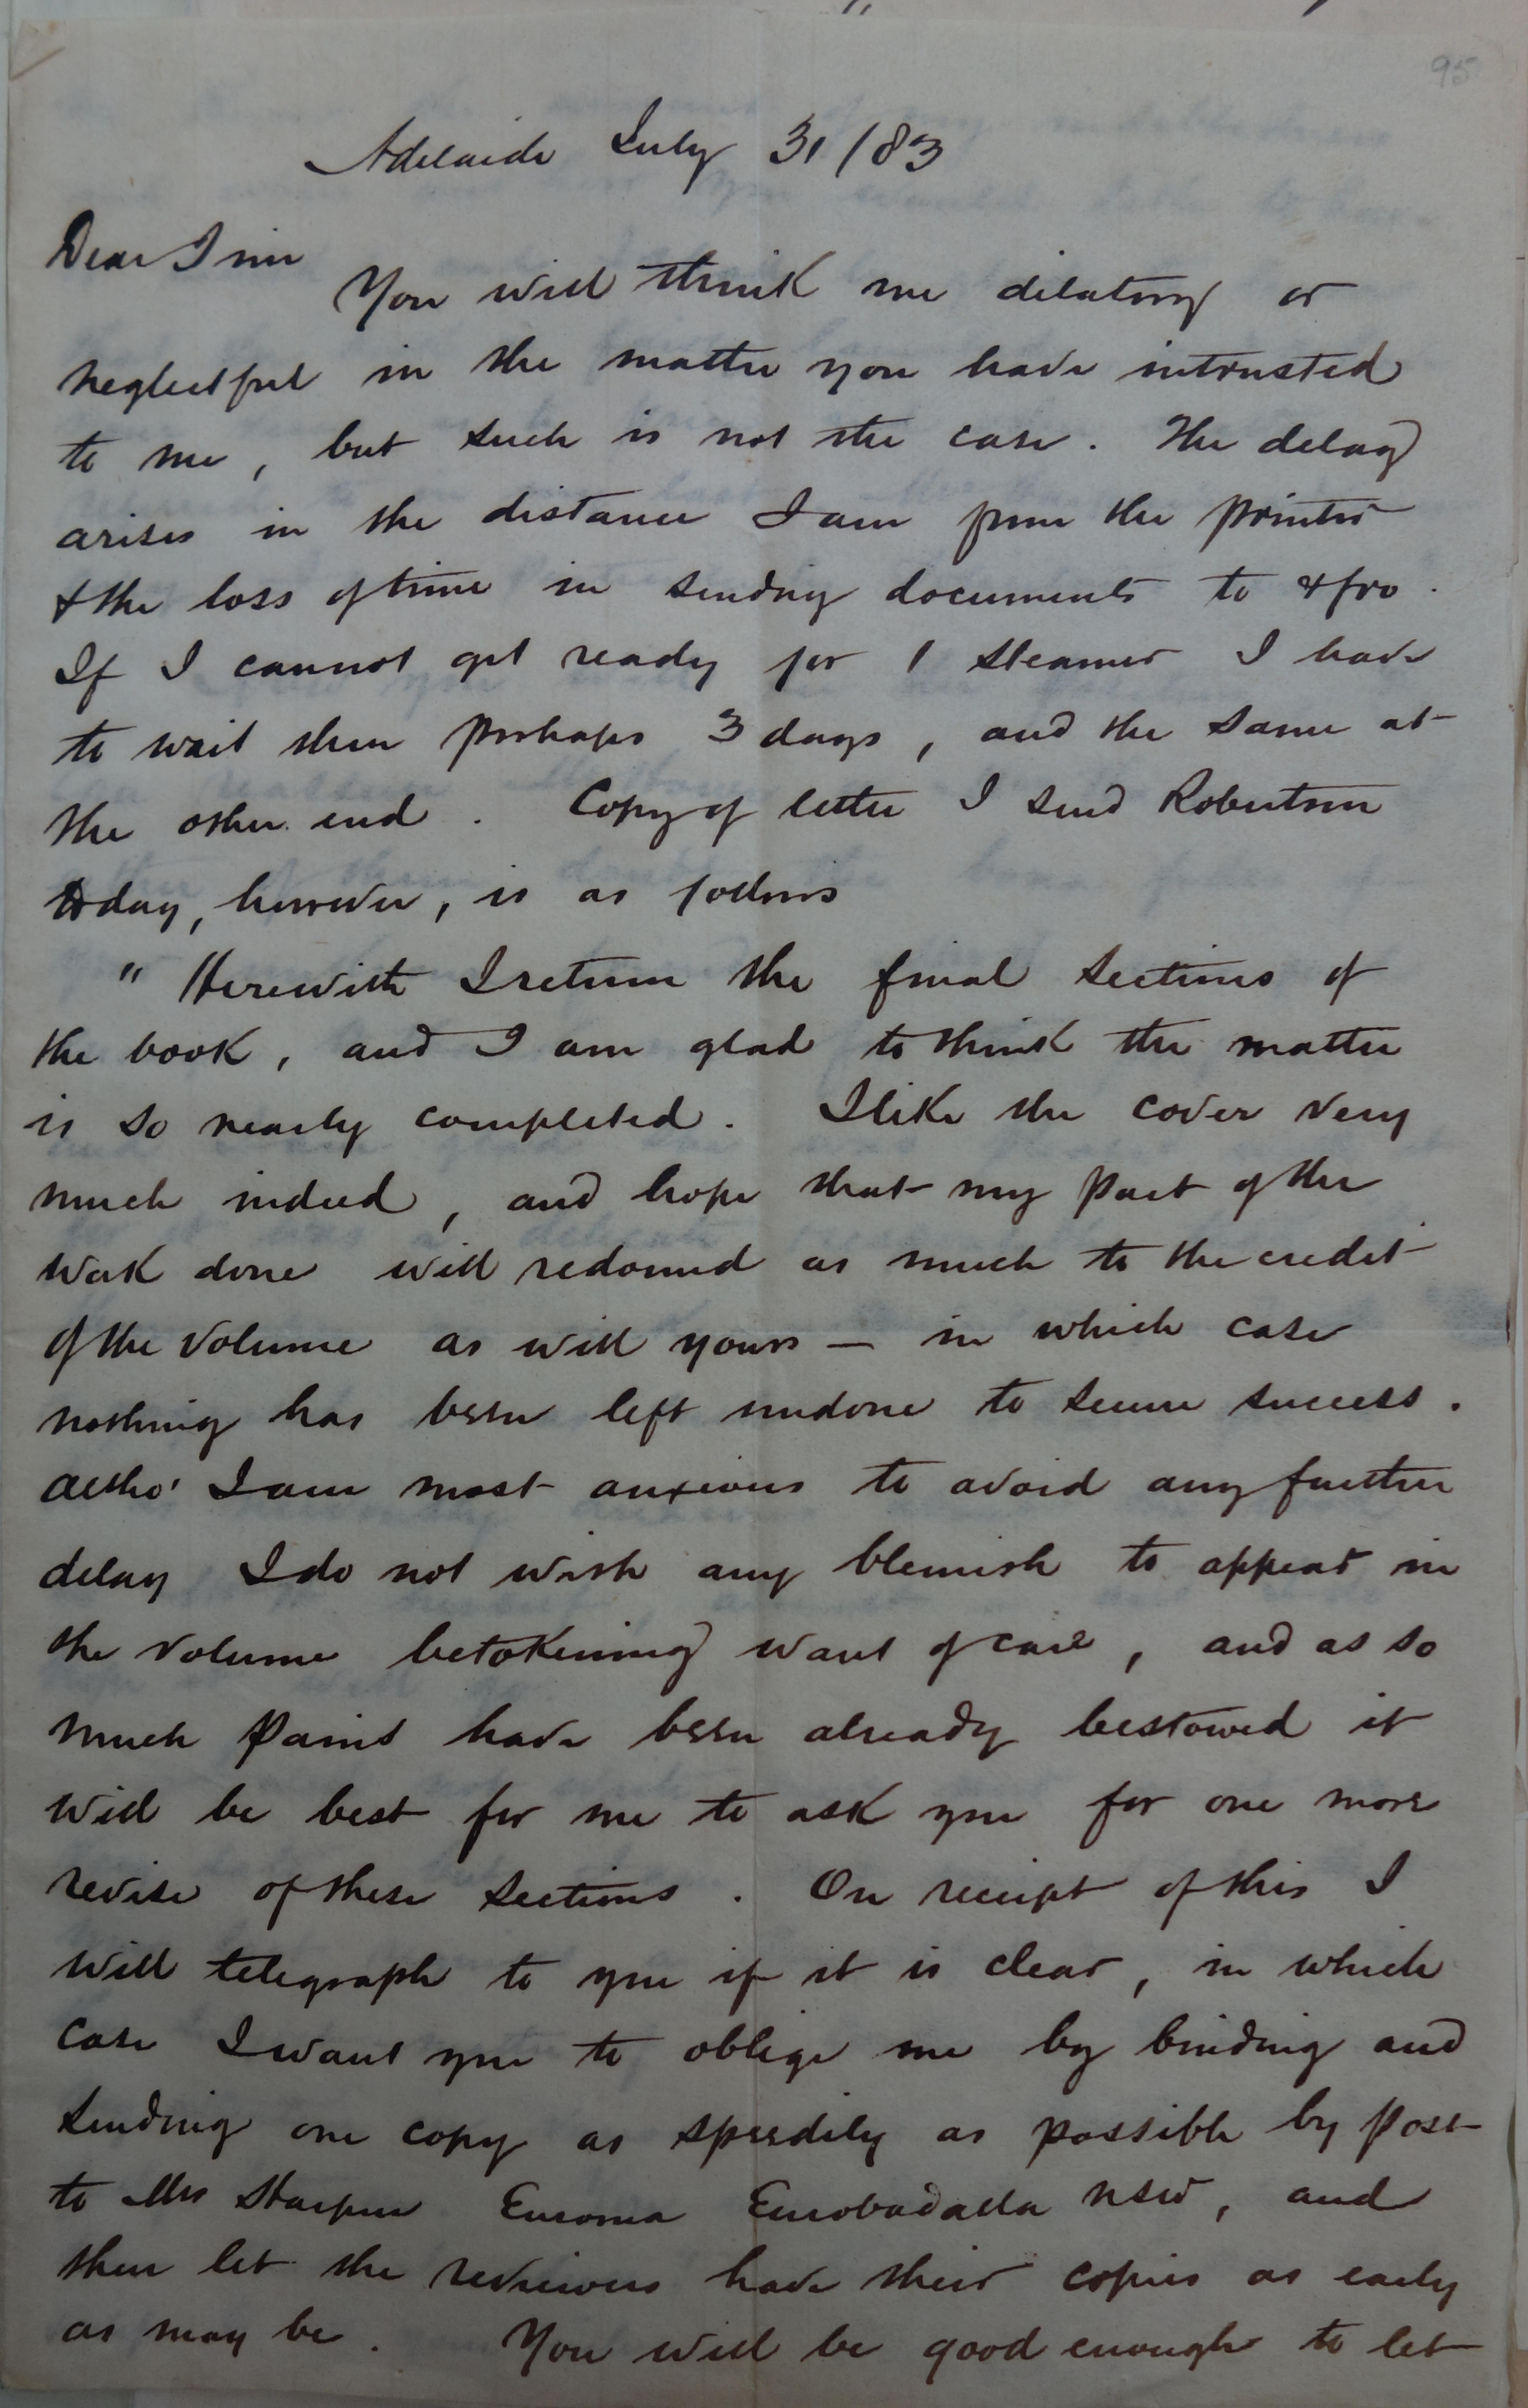 95
Adelaide July 31/83
Dear
You will think me dilatory or
neglectful in the matter you have intrusted
to me, but such is not the case. The delay
arises in the distance I am from the printer
& the loss of time in sending documents to & fro.
If I cannot get ready for 1 steamer I have
to wait then perhaps 3 days, and the same at
the other end. Copy of letter I send Robertson
today, however, is as follows
"Herewith I return the final sections of
the book, and I am glad to think the matter
is so nearly completed. I like the cover very
much indeed, and hope that my part of the
work done will redound as much to the credit
of the volume as will yours — in which case
nothing has been left undone to secure success.
Altho' I am most anxious to avoid any further
delay I do not wish any blemish to appear in
the volume betokening want of care, and as so
much pains have been already bestowed it
will be best for me to ask you for one more
revise of these sections. On receipt of this I
will telegraph to you if it is clear, in which
case I want you to oblige me by binding and
sending one copy as speedily as possible by post
to Mrs Harpur Euroma Eurobodalla NSW, and
then let the reviewers have their copies as early
as may be. You will be good enough to let